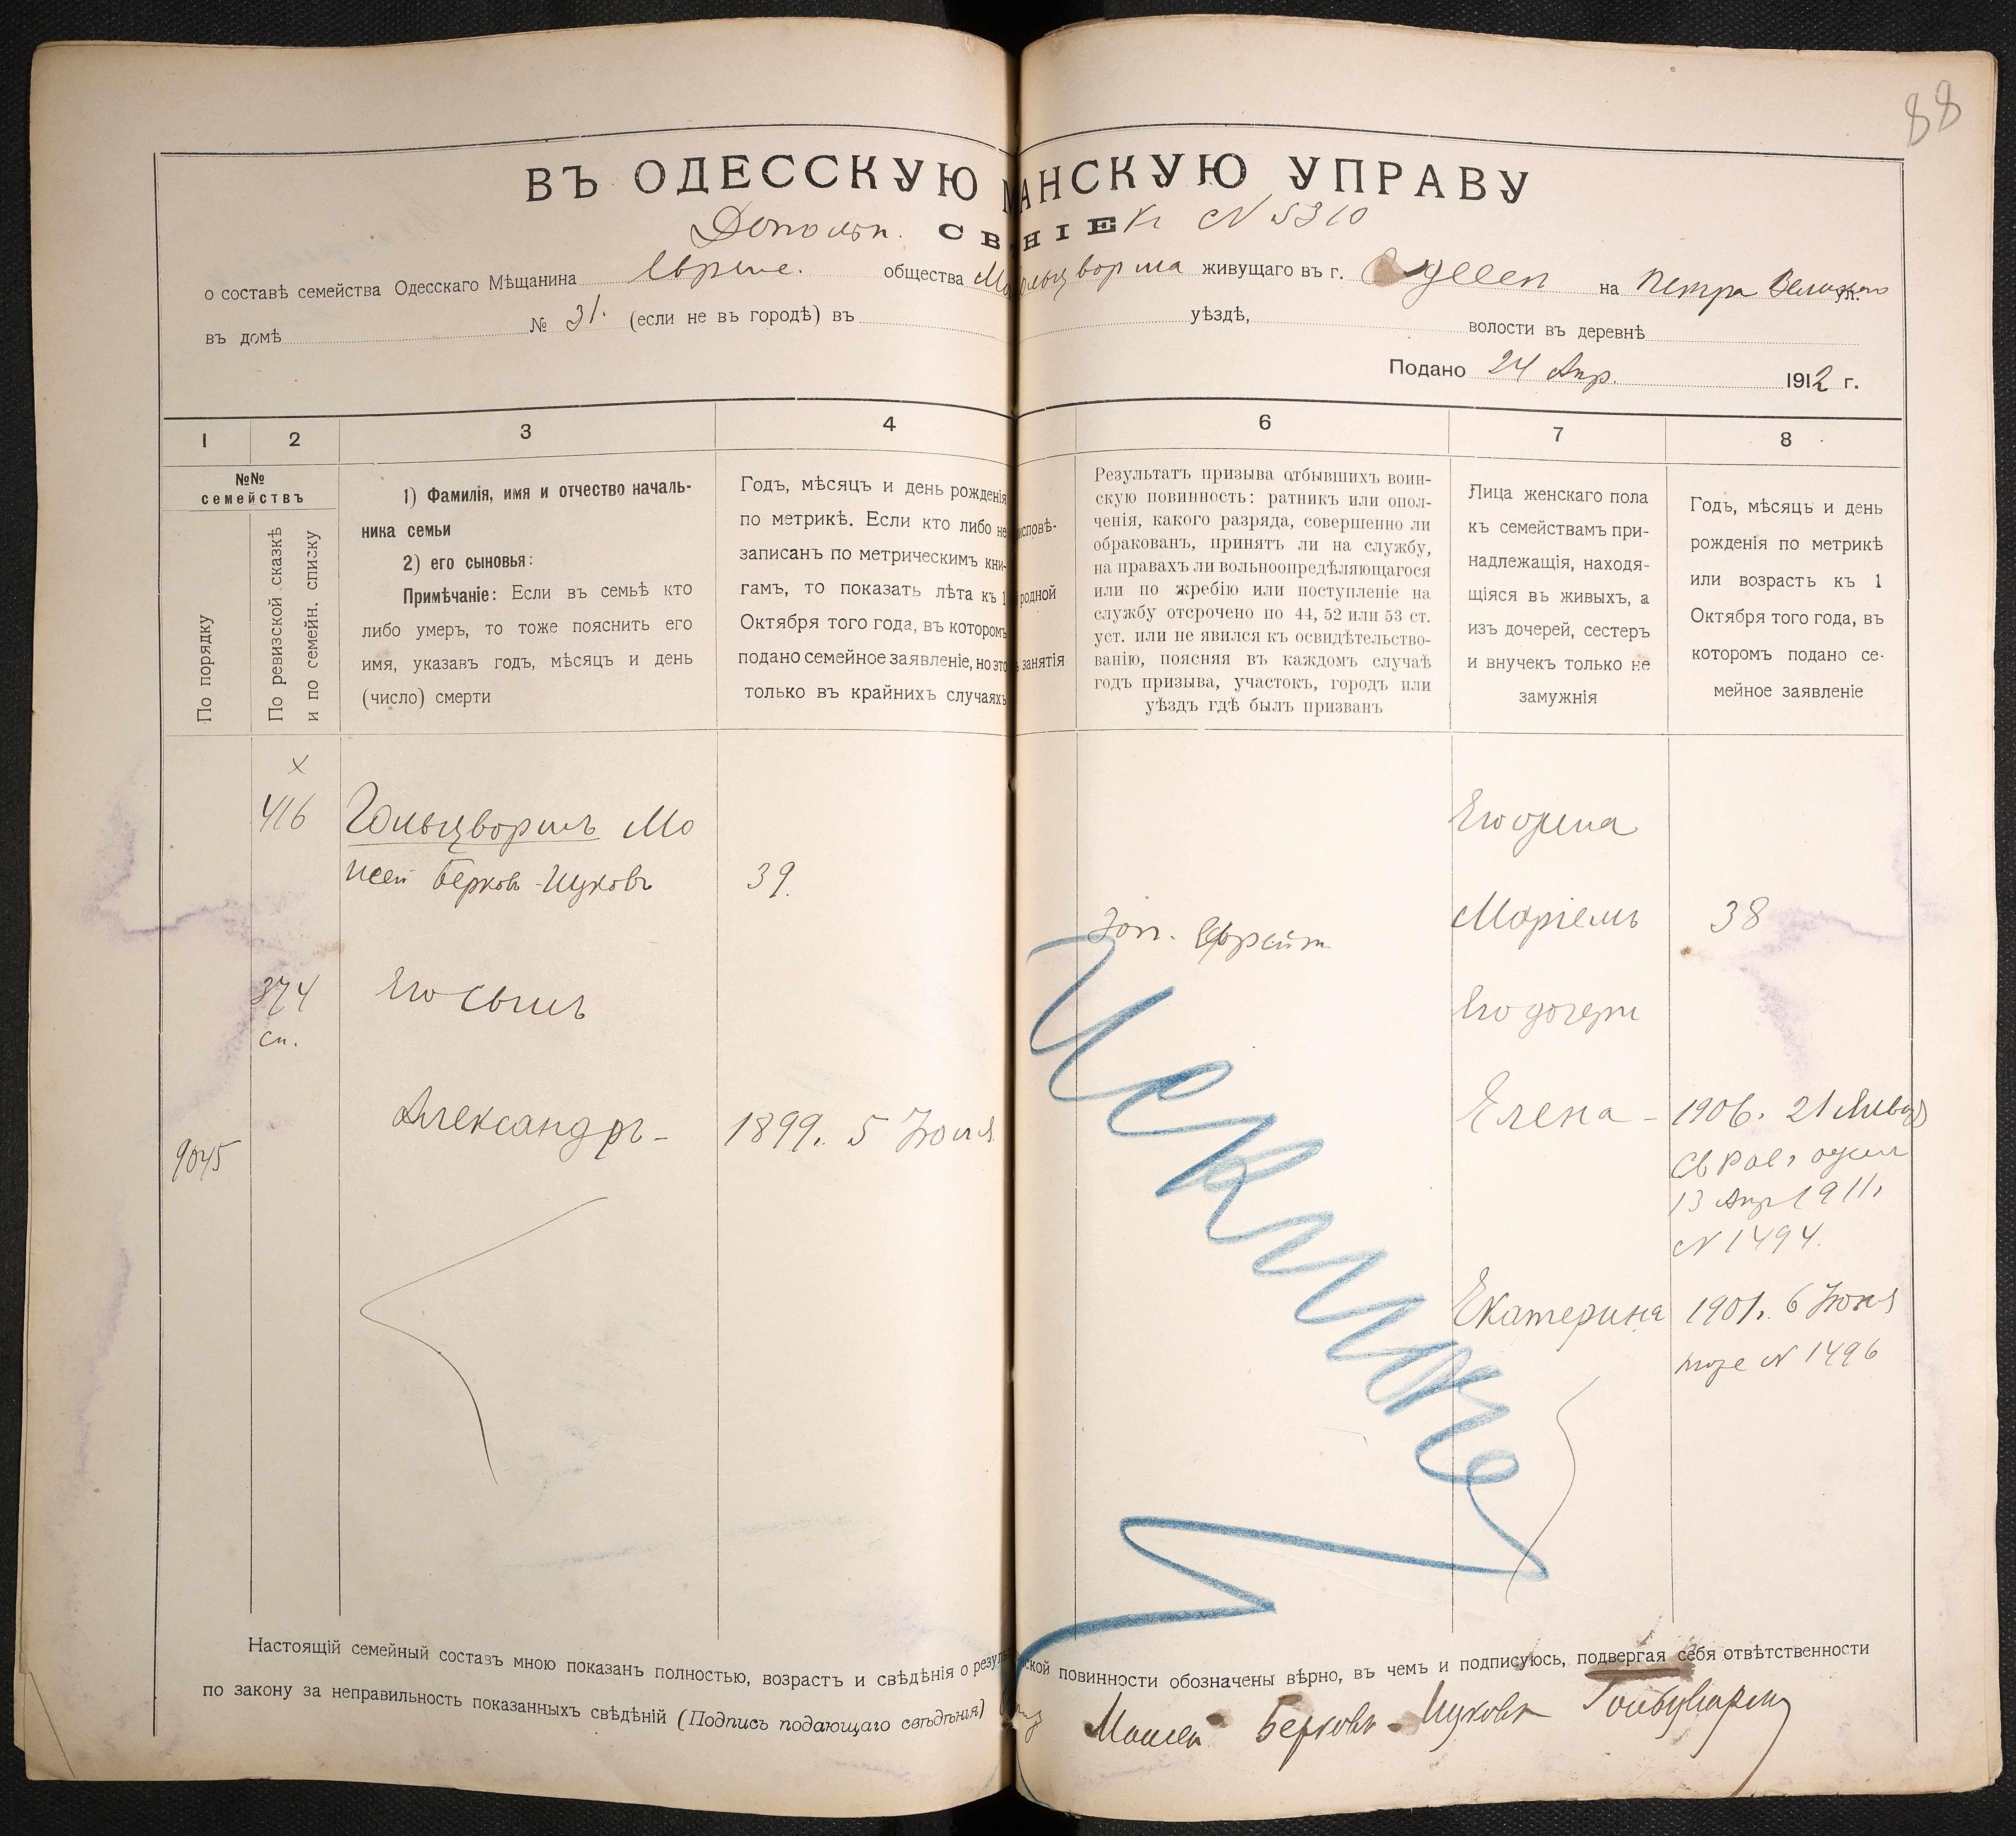 88
ВЪ ОДЕССКУЮ АНСКУЮ УПРАВУ
Дополн. СВ НІЕ Къ № 5310
о составѣ семейства Одесскаго Мѣщанина Еврейс. общества живущаго въ г. Одессѣ на Петра Великаго ул.
въ домѣ № 31. (если не въ городѣ) въ уѣздѣ, волости въ деревнѣ
Подано 24 Апр. 1912 г.
1 2 3 4 6 7 8
№№
семействъ
По порядку
По ревизской сказкѣ
и по семейн. списку
1) Фамилія, имя и отчество началь-
ника семьи
2) его сыновья:
Примѣчаніе: Если въ семьѣ кто
либо умеръ, то тоже пояснить его
имя, указавъ годъ, мѣсяцъ и день
(число) смерти
Годъ, мѣсяцъ и день рожденія
по метрикѣ. Если кто либо не
записанъ по метрическимъ кни-
гамъ, то показать лѣта къ 1
Октября того года, въ которомъ
подано семейное заявленіе, но это
только въ крайнихъ случаяхъ
исповѣ-
родной
занятія
Результатъ призыва отбывшихъ воин-
скую повинность: ратникъ или опол-
ченія, какого разряда, совершенно ли
обракованъ, принятъ ли на службу,
на правахъ ли вольноопредѣляющагося
или по жребію или поступленіе на
службу отсрочено по 44, 52 или 53 ст.
уст. или не явился къ освидѣтельство-
ванію, поясняя въ каждомъ случаѣ
годъ призыва, участокъ, городъ или
уѣздъ гдѣ былъ призванъ
Лица женскаго пола
къ семействамъ при-
надлежащія, находя-
щіяся въ живыхъ, а
изъ дочерей, сестеръ
и внучекъ только не
замужнія
Годъ, мѣсяцъ и день
рожденія по метрикѣ
или возрастъ къ 1
Октября того года, въ
которомъ подано се-
мейное заявленіе
х
416 Гольцвормъ Мо
исей Берковъ-Ицковъ 39.
Зап. Ефрейт
Его жена
Маріемъ 38
374
сп.
Его сынъ
Его дочери
Александръ - 1899. 5 Іюля
9045
Елена - 1906. 21 Янв
Св Рав. один
13 Апр 1911.
№ 1494.
Екатерина 1901. 6 Іюня
тоже № 1496
Настоящій семейный составъ мною показанъ полностью, возрастъ и свѣдѣнія о резуль ской повинности обозначены вѣрно, въ чемъ и подписуюсь, подвергая себя отвѣтственности
по закону за неправильность показанныхъ свѣдѣній (Подпись подающаго свѣдѣнія) Моисей Берковъ-Ицковъ Гольцвармъ